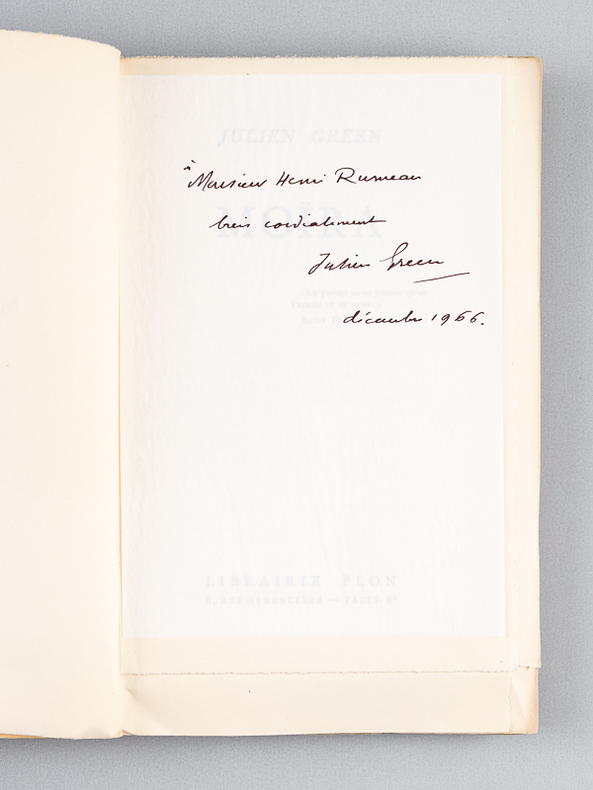 JULIEN GREEN
à Monsieur Henri Rumeau
MOÏRA
très cordialement
Julien Green
décembre 1966.
LIBRAIRIE PLON
8, RUE GARANCIÈRE — PARIS-6e